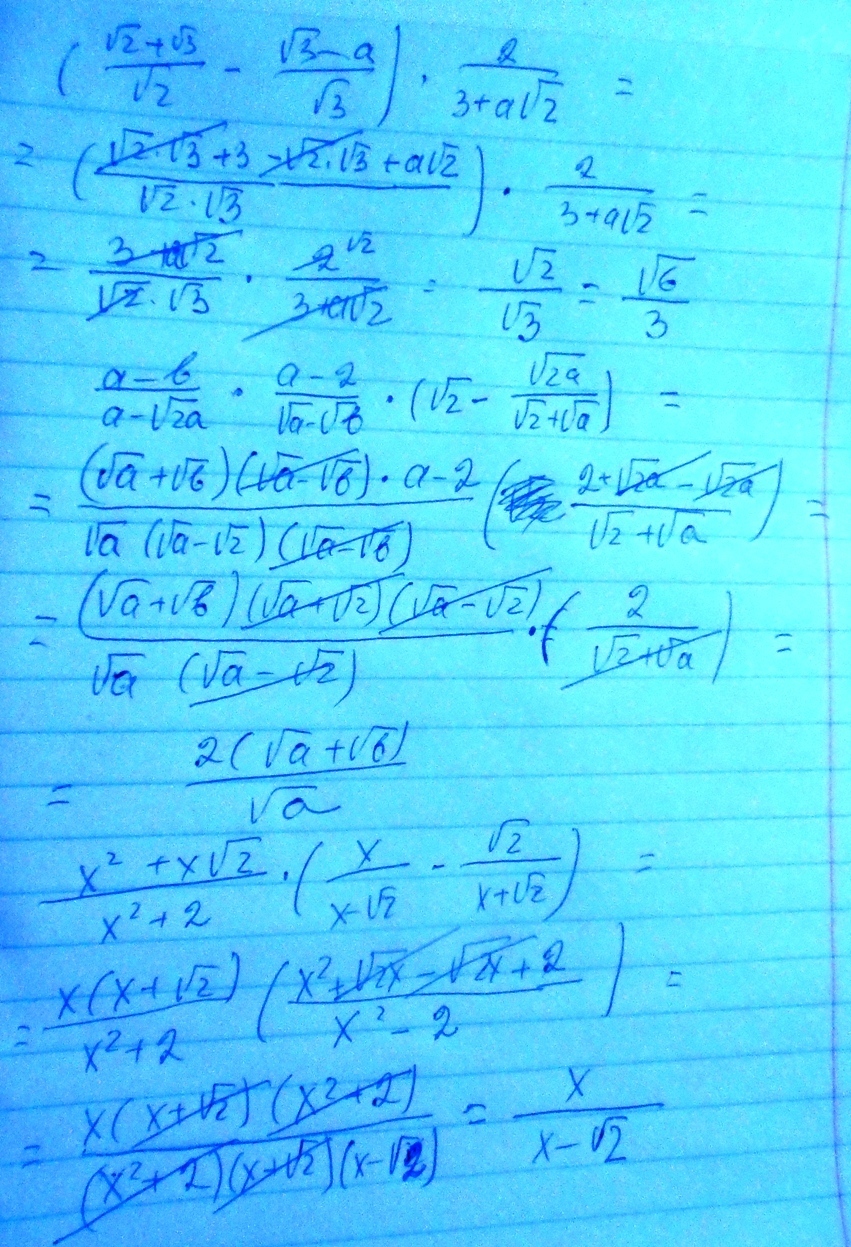 ( (√2+√3)/√2 - (√3-a)/√3 ) · 2/(3+a√2) =
= ( (√2·√3+3-√2·√3+a√2)/(√2·√3) ) · 2/(3+a√2) =
= (3+a√2)/(√2·√3) · 2^√2/(3+a√2) = √2/√3 = √6/3
(a-b)/(a-√2a) · (a-2)/(√a-√b) · (√2 - √2a/(√2+√a)) =
= ((√a+√b)(√a-√b)·a-2)/(√a(√a-√2)(√a-√b)) ( (2+√2a-√2a)/(√2+√a) ) =
= ((√a+√b)(√a+√2)(√a-√2))/(√a(√a-√2)) · ( 2/(√2+√a) ) =
= 2(√a+√b)/√a
(x²+x√2)/(x²+2) · ( x/(x-√2) - √2/(x+√2) ) =
= x(x+√2)/(x²+2) ( (x²+√2x-√2x+2)/(x²-2) ) =
= (x(x+√2)(x²+2))/((x²+2)(x+√2)(x-√2)) = x/(x-√2)